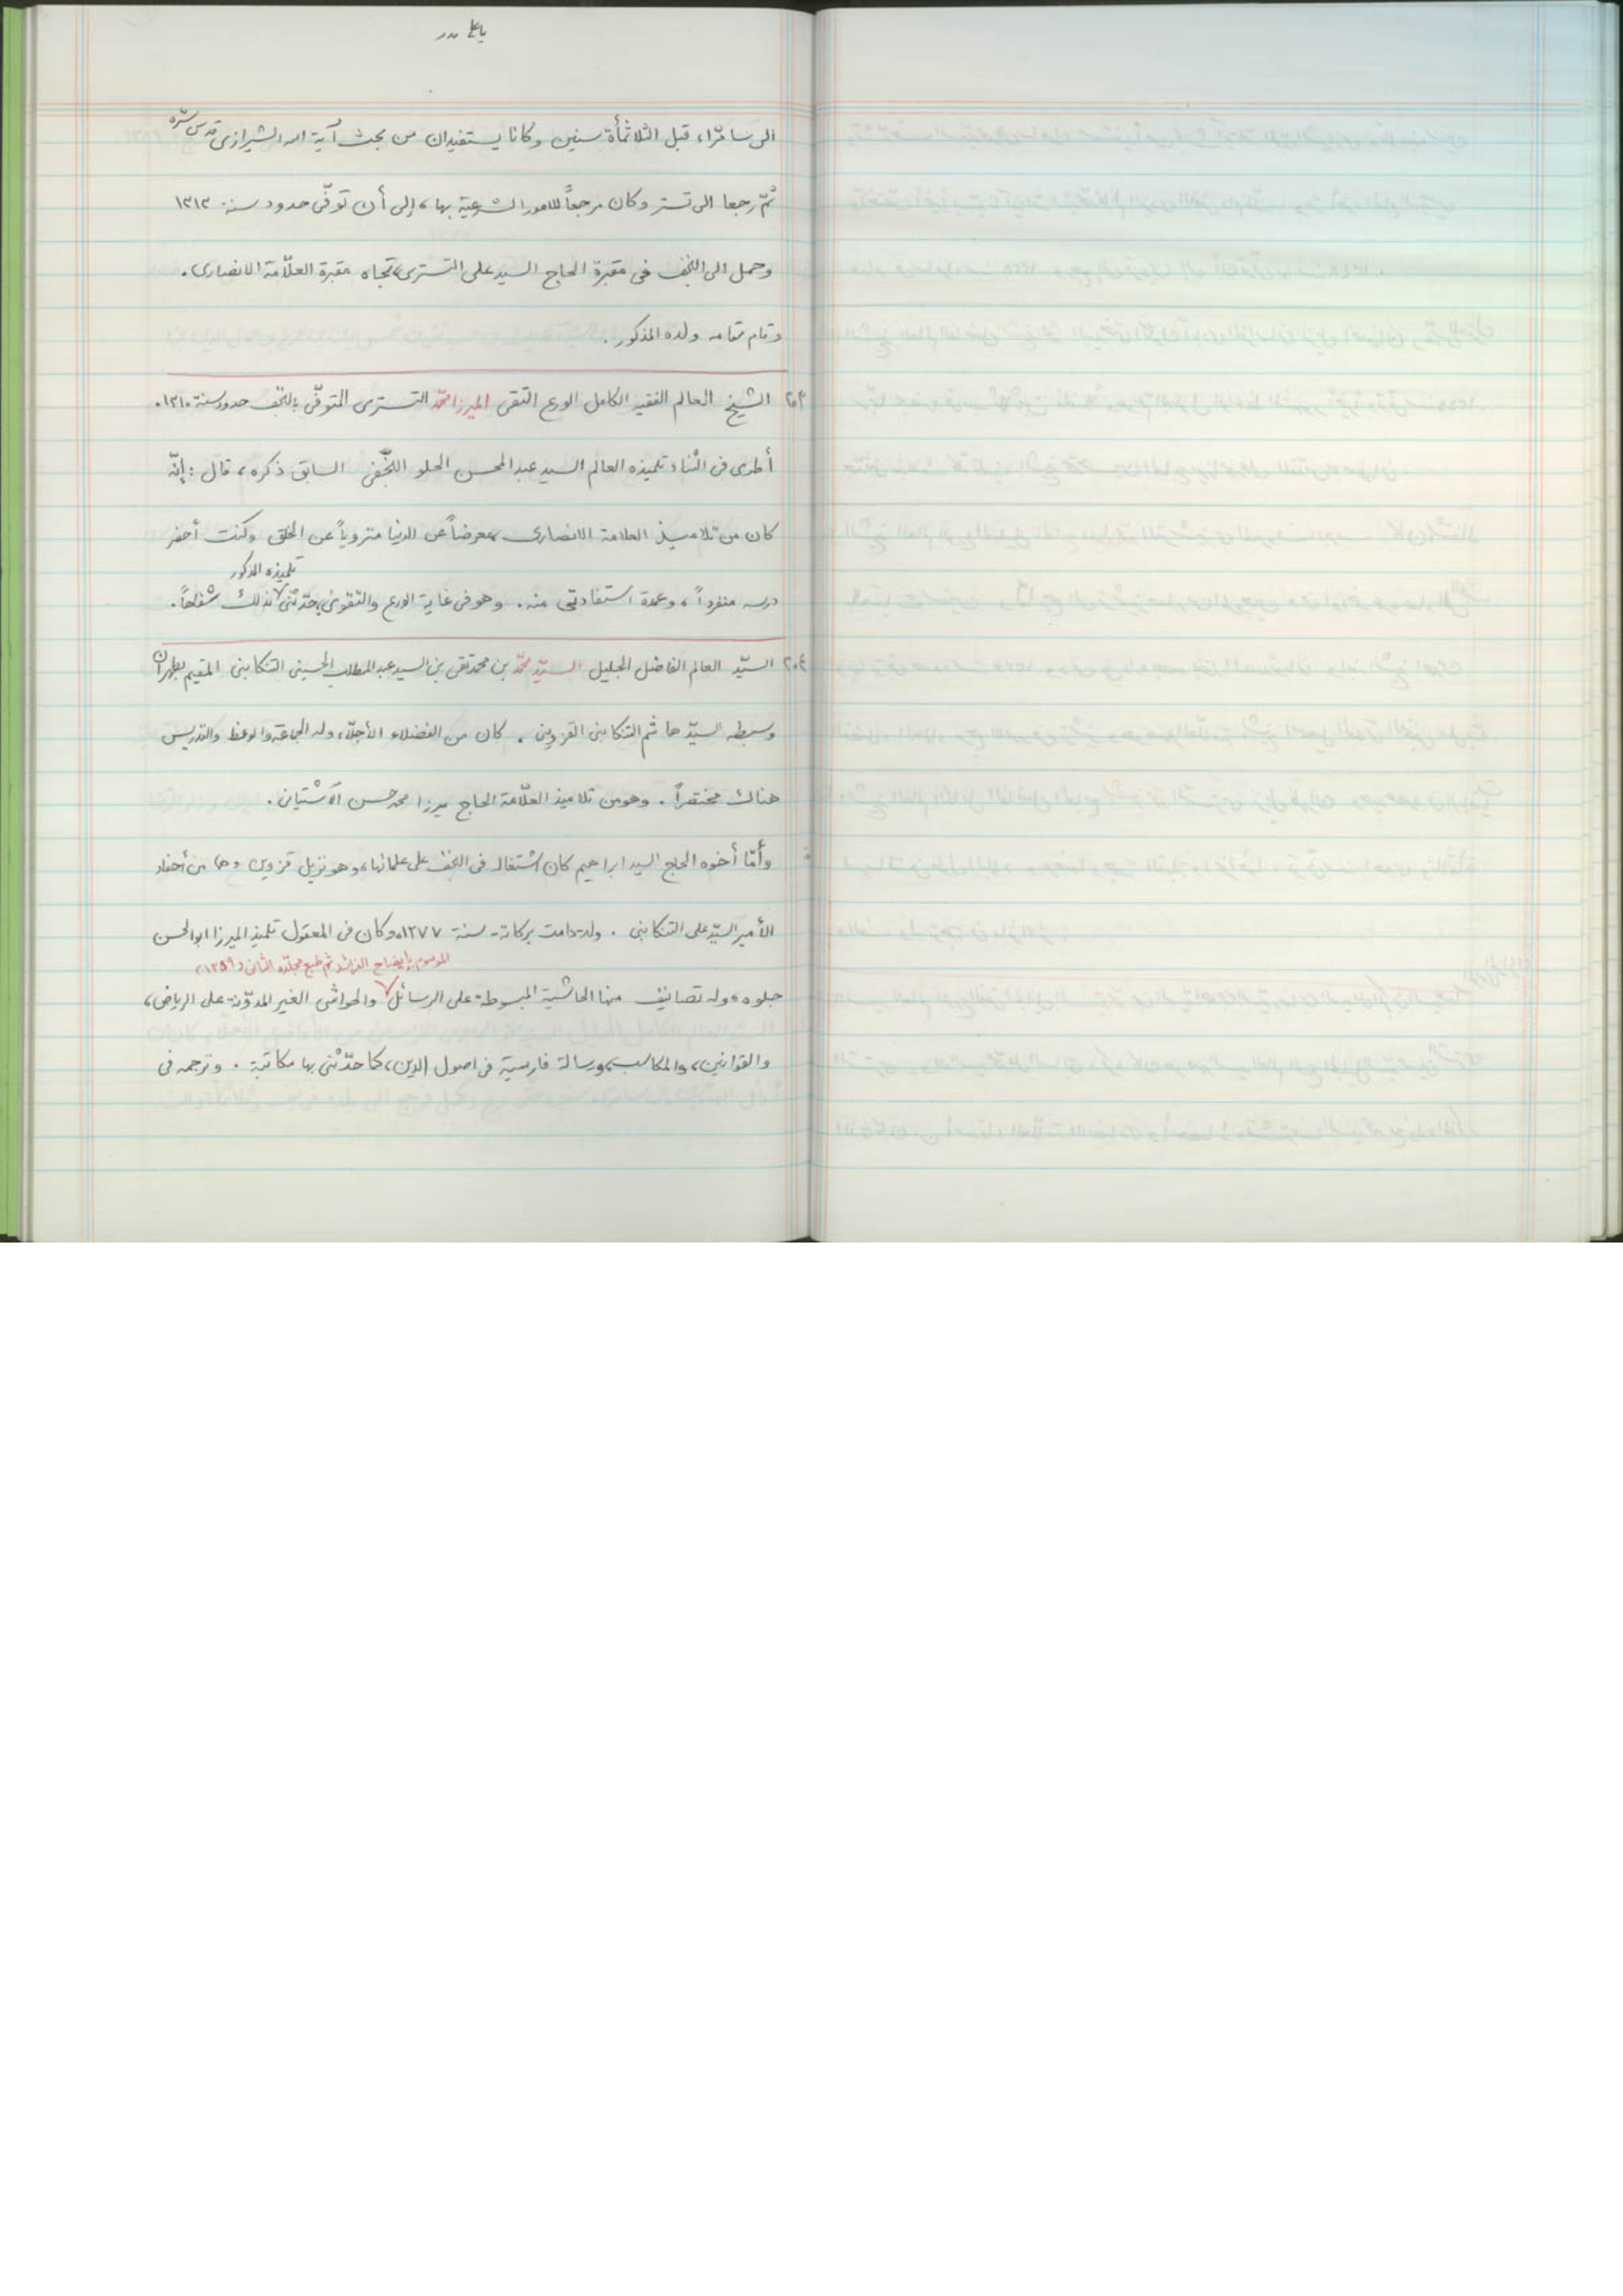 الى سامرّاء قبل الثلاثمأة سنين وكانا يستفيدان من بحث آية الله الشيرازى قدس سرّه
ثمّ رجعا الى تستر وكان مرجعاً للامور الشرعية بها، إلى أن توفّى حدود سنة ١٣١٣
وحمل الى النجف فى مقبرة الحاج السيد على التسترى، تجاه مقبرة العلّامة الانصارى.
وقام مقامه ولده المذكور.
٢٠٣ الشيخ العالم الفقيه الكامل الورع التقى الميرزا محمّد التسترى المتوفّى بالنجف حدود سنة ١٣١٠.
أطرى فى الثناء تلميذه العالم السيد عبد المحسن الحلو النجفى السابق ذكره، قال: إنّه
كان من تلاميذ العلامة الانصارى، معرضاً عن الدنيا منزوياً عن الخلق وكنت أحضر
تلميذه المذكور
درسه منفرداً، وعمدة استفادتى منه. وهو فى غاية الورع والتقوى، حدّثنى بذلك شفاهاً.
٢٠٤ السيّد العالم الفاضل الجليل السيّد محمّد بن محمد تقى بن السيد عبد المطلب الحسينى التنكابنى المقيم بطهران
وسبطه السيّد هاشم التنكابنى القزوينى. كان من الفضلاء الأجلّاء، وله الجماعة والوعظ والتدريس
هناك مختصراً. وهو من تلاميذ العلّامة الحاج ميرزا محمد حسن الآشتيانى.
وأمّا أخوه الحاج السيد ابراهيم كان اشتغاله فى النجف على علمائها، وهو نزيل قزوين وهما من أحفاد
الأمير السيّد على التنكابنى. ولد - دامت بركاته - سنة ١٢٧٧، وكان فى المعقول تلميذ الميرزا ابو الحسن
الموسوم بإيضاح الفرائد ثم طبع مجلّده الثانى (١٣٥٩)
جلوه، وله تصانيف منها الحاشية المبسوطة على الرسائل والحواشى الغير المدوّنة على الرياض،
والقوانين، والمكاسب، ورسالة فارسية فى اصول الدين، كما حدّثنى بها مكاتبة. وترجمه فى